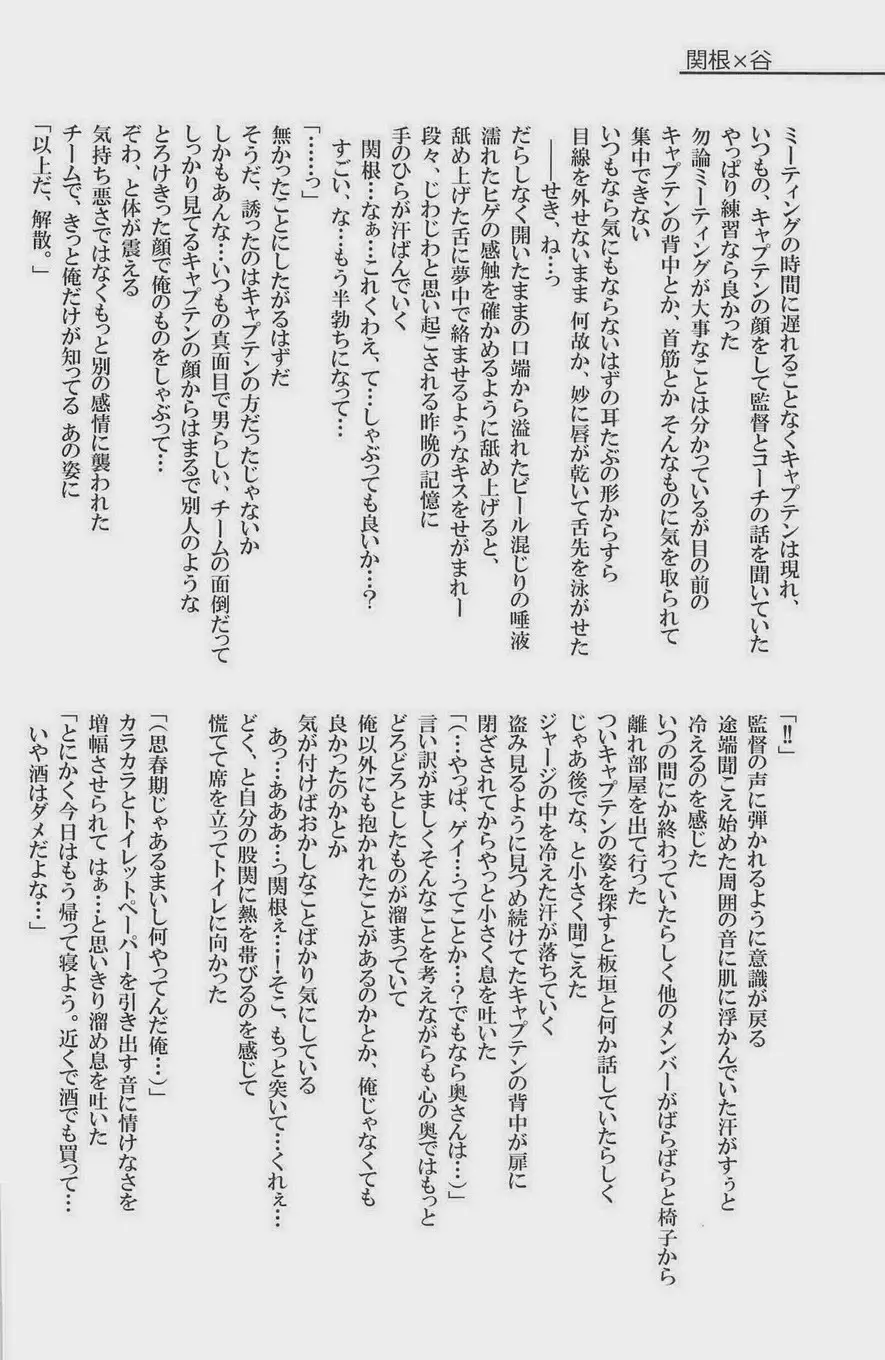 関根×谷
ミーティングの時間に遅れることなくキャプテンは現れ、
いつもの、キャプテンの顔をして監督とコーチの話を聞いていた
やっぱり練習なら良かった
勿論ミーティングが大事なことは分かっているが目の前の
キャプテンの背中とか、首筋とか そんなものに気を取られて
集中できない
いつもなら気にもならないはずの耳たぶの形からすら
目線を外せないまま 何故か、妙に唇が乾いて舌先を泳がせた
――せき、ね…っ
だらしなく開いたままの口端から溢れたビール混じりの唾液
濡れたヒゲの感触を確かめるように舐め上げると、
舐め上げた舌に夢中で絡ませるようなキスをせがまれー
段々、じわじわと思い起こされる昨晩の記憶に
手のひらが汗ばんでいく
関根…なぁ…これくわえ、て…しゃぶっても良いか…?
すごい、な…もう半勃ちになって…
「……っ」
無かったことにしたがるはずだ
そうだ、誘ったのはキャプテンの方だったじゃないか
しかもあんな…いつもの真面目で男らしい、チームの面倒だって
しっかり見てるキャプテンの顔からはまるで別人のような
とろけきった顔で俺のものをしゃぶって…
ぞわ、と体が震える
気持ち悪さではなくもっと別の感情に襲われた
チームで、きっと俺だけが知ってる あの姿に
「以上だ、解散。」
「!!」
監督の声に弾かれるように意識が戻る
途端聞こえ始めた周囲の音に肌に浮かんでいた汗がすぅと
冷えるのを感じた
いつの間にか終わっていたらしく他のメンバーがばらばらと椅子から
離れ部屋を出て行った
ついキャプテンの姿を探すと板垣と何か話していたらしく
じゃあ後でな、と小さく聞こえた
ジャージの中を冷えた汗が落ちていく
盗み見るように見つめ続けてたキャプテンの背中が扉に
閉ざされてからやっと小さく息を吐いた
「(…やっぱ、ゲイ…ってことか…?でもなら奥さんは…)」
言い訳がましくそんなことを考えながらも心の奥ではもっと
どろどろとしたものが溜まっていて
俺以外にも抱かれたことがあるのかとか、俺じゃなくても
良かったのかとか
気が付けばおかしなことばかり気にしている
あっ…あああ…っ関根ぇ…!そこ、もっと突いて…くれぇ…
どく、と自分の股間に熱を帯びるのを感じて
慌てて席を立ってトイレに向かった
「(思春期じゃあるまいし何やってんだ俺…)」
カラカラとトイレットペーパーを引き出す音に情けなさを
増幅させられて はぁ…と思いきり溜め息を吐いた
「とにかく今日はもう帰って寝よう。近くで酒でも買って…
いや酒はダメだよな…」